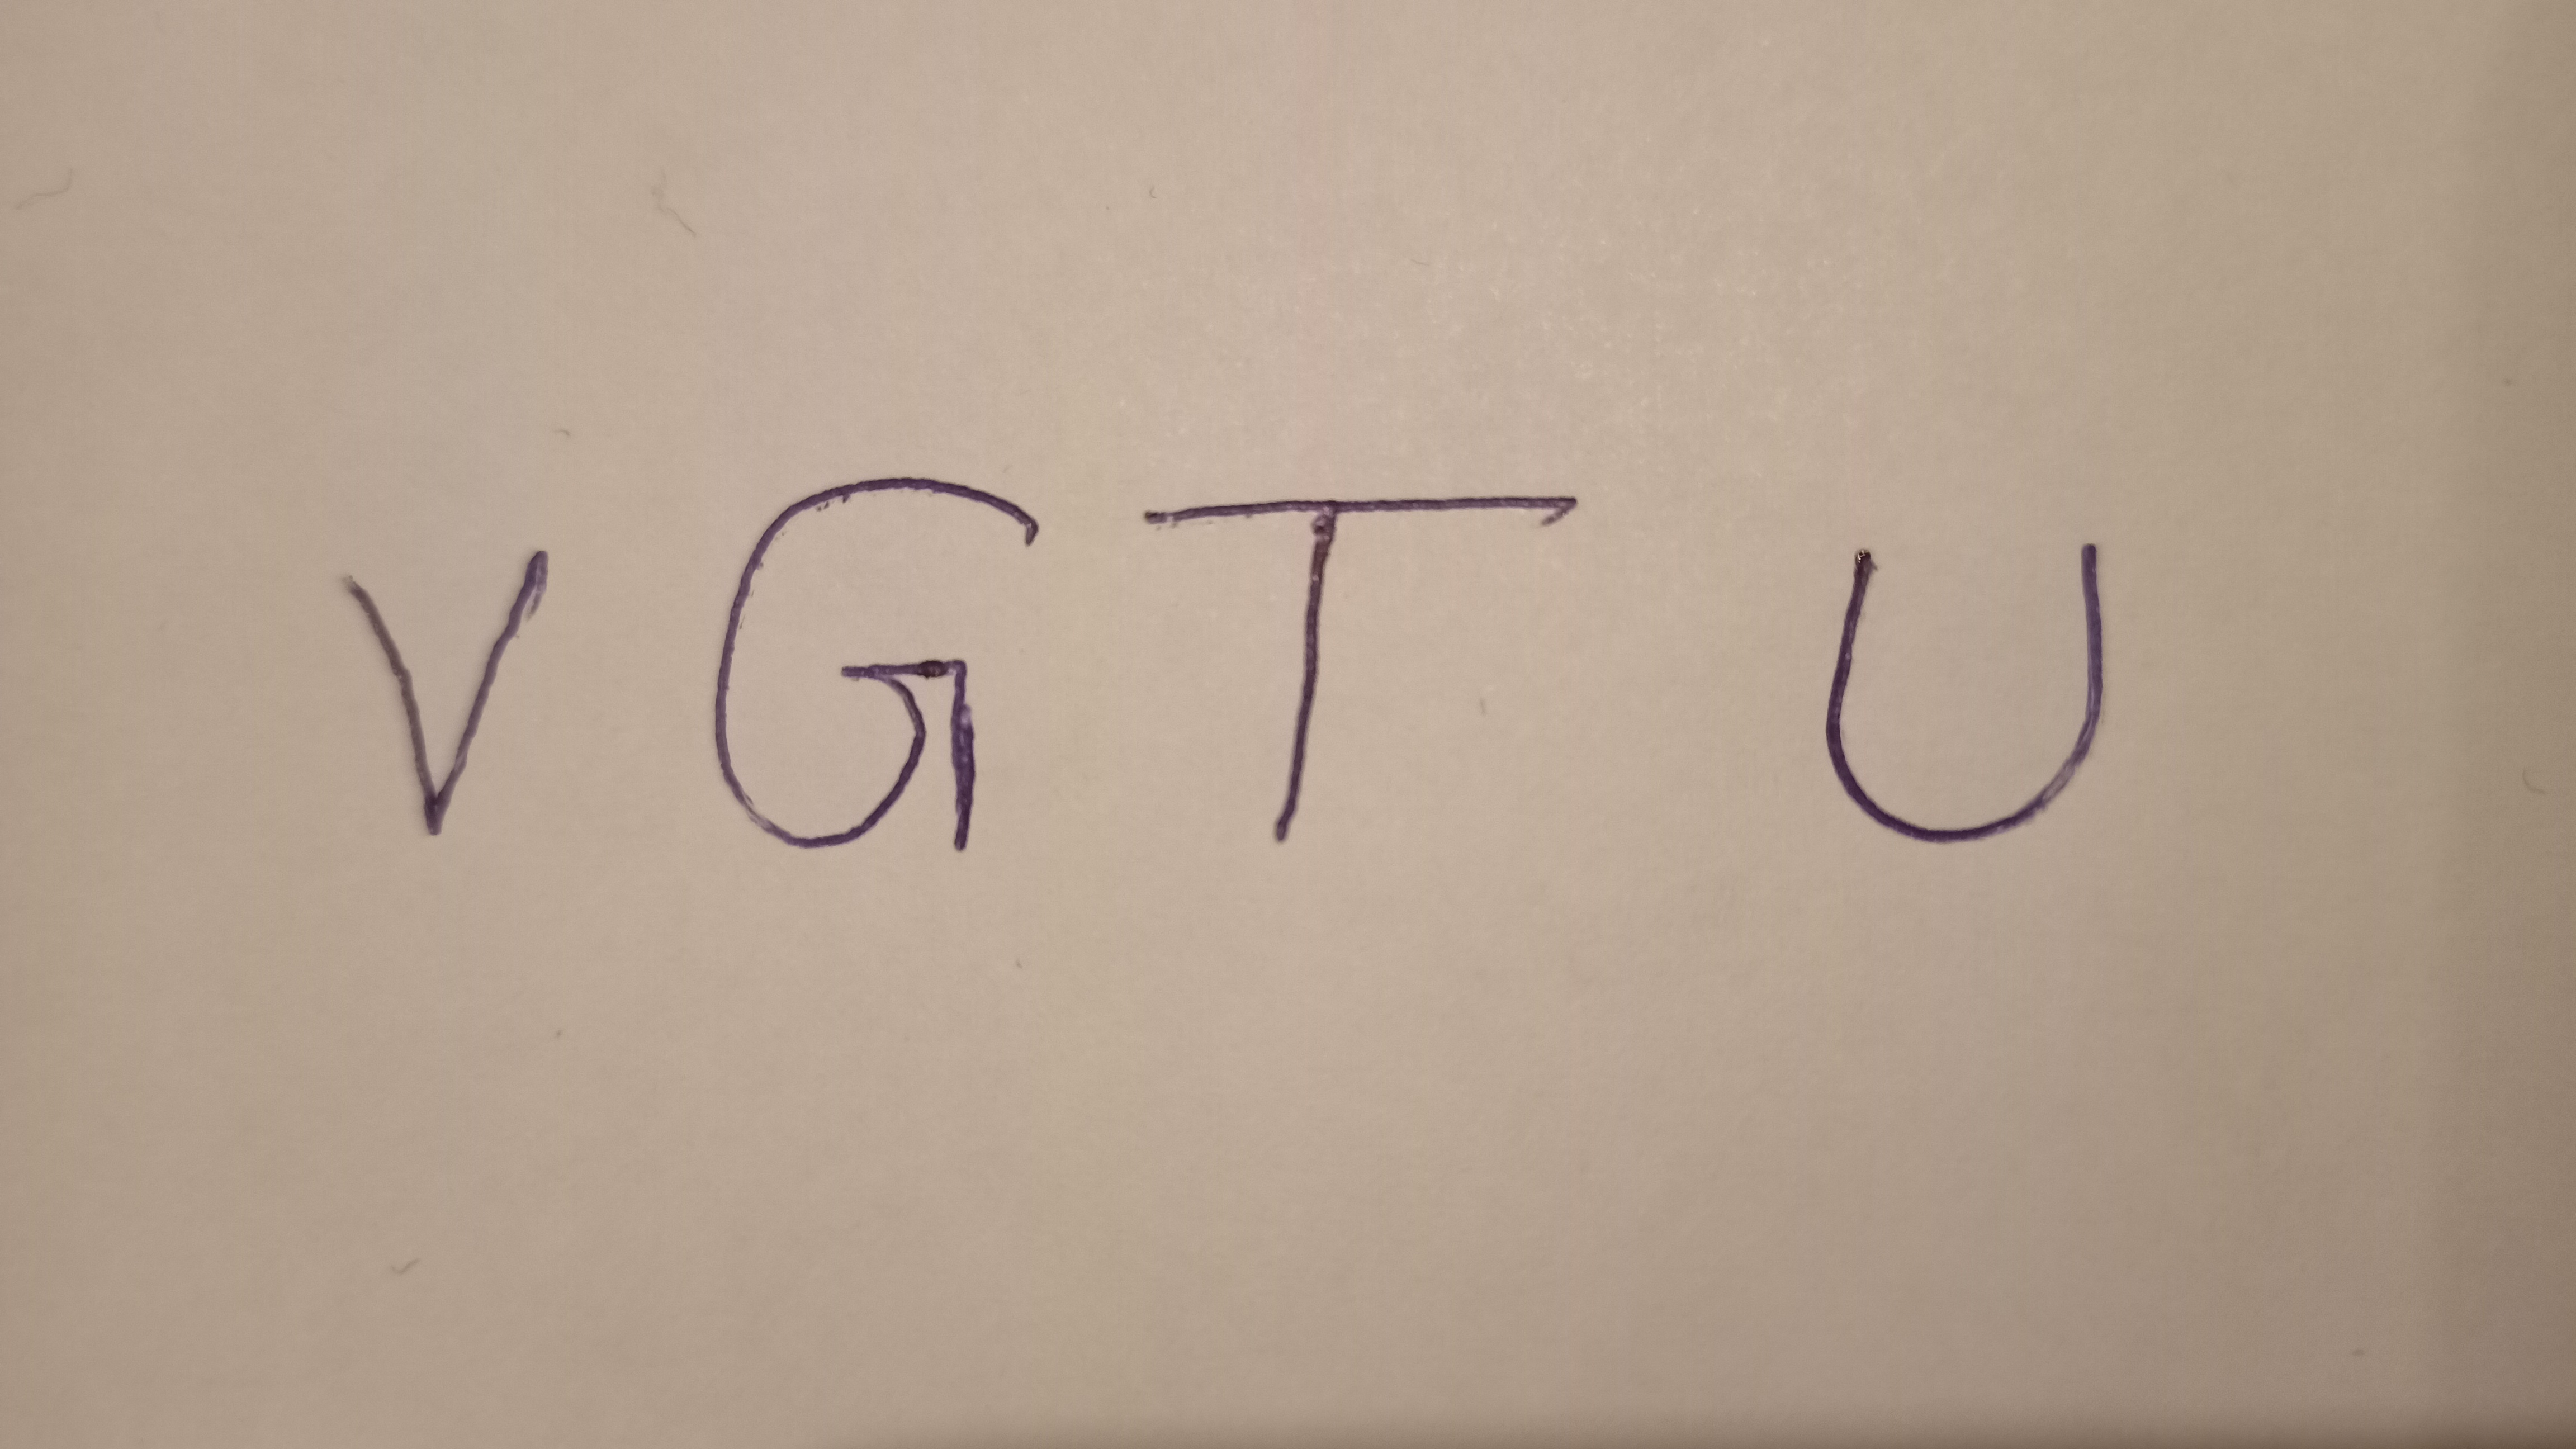 V G T U